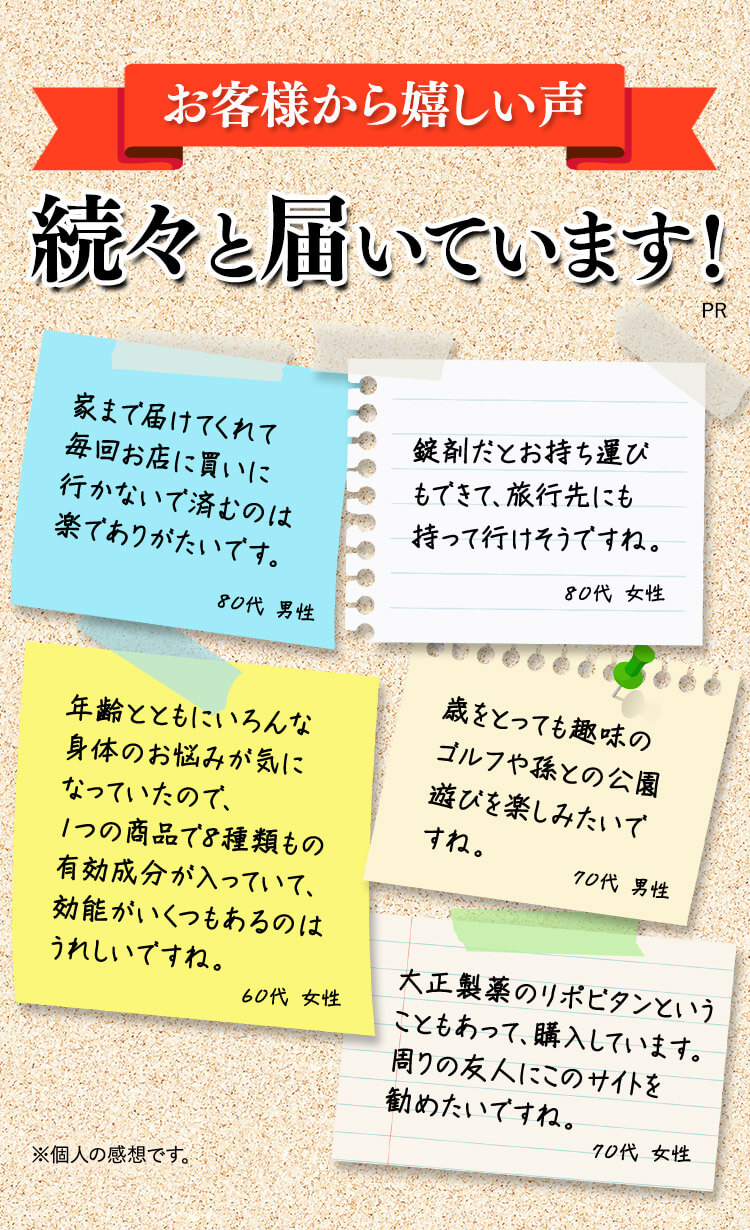 お客様から嬉しい声
続々と届いています!
PR
家まで届けてくれて
毎回お店に買いに
行かないで済むのは
楽でありがたいです。
80代 男性
錠剤だとお持ち運び
もできて、旅行先にも
持って行けそうですね。
80代 女性
年齢とともにいろんな
身体のお悩みが気に
なっていたので、
1つの商品で8種類もの
有効成分が入っていて、
効能がいくつもあるのは
うれしいですね。
60代 女性
歳をとっても趣味の
ゴルフや孫との公園
遊びを楽しみたいで
すね。
70代 男性
大正製薬のリポビタンという
こともあって、購入しています。
周りの友人にこのサイトを
勧めたいですね。
70代 女性
※個人の感想です。